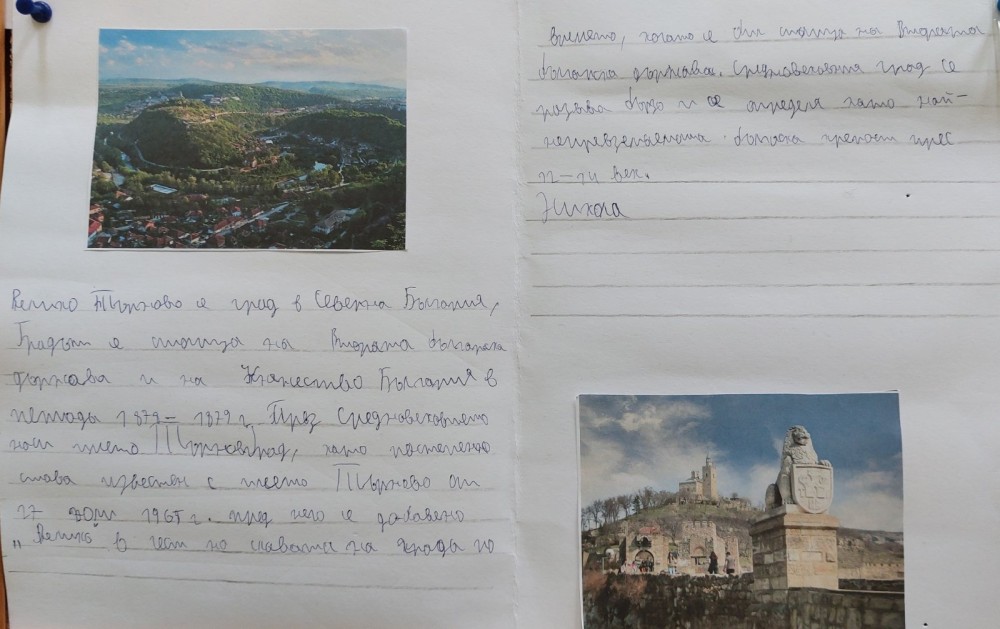 Велико Търново е град в Северна България,
Градът е столица на Втората българска
държава и на Княжество България в
периода 1879 – 1879 г. През Средновековието
носи името Търновград, като постепенно
става известен с името Търново от
27 юли 1965 г. пред него е добавено
„Велико в чест на славата на града по
времето, когато е бил столица на Втората
българска държава. Средновековния град се
развива бързо и се определя като най-
непревземаемата българска крепост през
12–14 век.
Никола